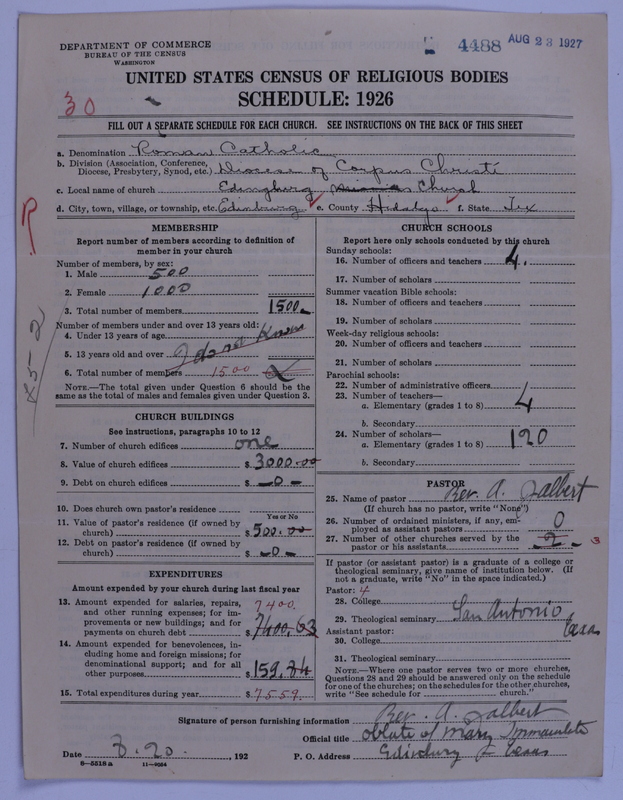 DEPARTMENT OF COMMERCE
BUREAU OF THE CENSUS
WASHINGTON
4488 AUG 23 1927
UNITED STATES CENSUS OF RELIGIOUS BODIES
SCHEDULE: 1926
30
FILL OUT A SEPARATE SCHEDULE FOR EACH CHURCH. SEE INSTRUCTIONS ON THE BACK OF THIS SHEET
a. Denomination Roman Catholic
b. Division (Association, Conference, Diocese, Presbytery, Synod, etc.) Diocese of Corpus Christi
c. Local name of church Edingburg Church
d. City, town, village, or township, etc. Edinburg e. County Hidalgo f. State Tex
R
MEMBERSHIP
Report number of members according to definition of
member in your church
Number of members, by sex:
1. Male 500
2. Female 1000
3. Total number of members 1500
Number of members under and over 13 years old:
4. Under 13 years of age
5. 13 years old and over I do not know
6. Total number of members 1500
NOTE.—The total given under Question 6 should be the
same as the total of males and females given under Question 3.
CHURCH BUILDINGS
See instructions, paragraphs 10 to 12
7. Number of church edifices one
8. Value of church edifices $ 3000.00
9. Debt on church edifices $ —0—
10. Does church own pastor's residence?
Yes or No
11. Value of pastor's residence (if owned by
church) $ 500.00
12. Debt on pastor's residence (if owned by
church) $ —0—
EXPENDITURES
Amount expended by your church during last fiscal year
13. Amount expended for salaries, repairs, 7400.
and other running expenses; for im-
provements or new buildings; and for
payments on church debt $ 7400.63
14. Amount expended for benevolences, in-
cluding home and foreign missions; for
denominational support; and for all
other purposes $ 159.34
15. Total expenditures during year $ 7559.
CHURCH SCHOOLS
Report here only schools conducted by this church
Sunday schools:
16. Number of officers and teachers 4.
17. Number of scholars
Summer vacation Bible schools:
18. Number of officers and teachers
19. Number of scholars
Week-day religious schools:
20. Number of officers and teachers
21. Number of scholars
Parochial schools:
22. Number of administrative officers
23. Number of teachers—
a. Elementary (grades 1 to 8) 4
b. Secondary
24. Number of scholars—
a. Elementary (grades 1 to 8) 120
b. Secondary
PASTOR
25. Name of pastor Rev. A. Jalbert
(If church has no pastor, write "None")
26. Number of ordained ministers, if any, em-
ployed as assistant pastors 0
27. Number of other churches served by the
pastor or his assistants 2 3
If pastor (or assistant pastor) is a graduate of a college or
theological seminary, give name of institution below. (If
not a graduate, write "No" in the space indicated.)
Pastor: 4
28. College
29. Theological seminary San Antonio Texas
Assistant pastor:
30. College
31. Theological seminary
NOTE.—Where one pastor serves two or more churches,
Questions 28 and 29 should be answered only on the schedule
for one of the churches; on the schedules for the other churches,
write "See schedule for church."
Signature of person furnishing information Rev. A. Jalbert
Official title Oblate of Mary Immaculate
Date 3.20. , 192 P. O. Address Edinburg Texas
6—5218a 11—9054